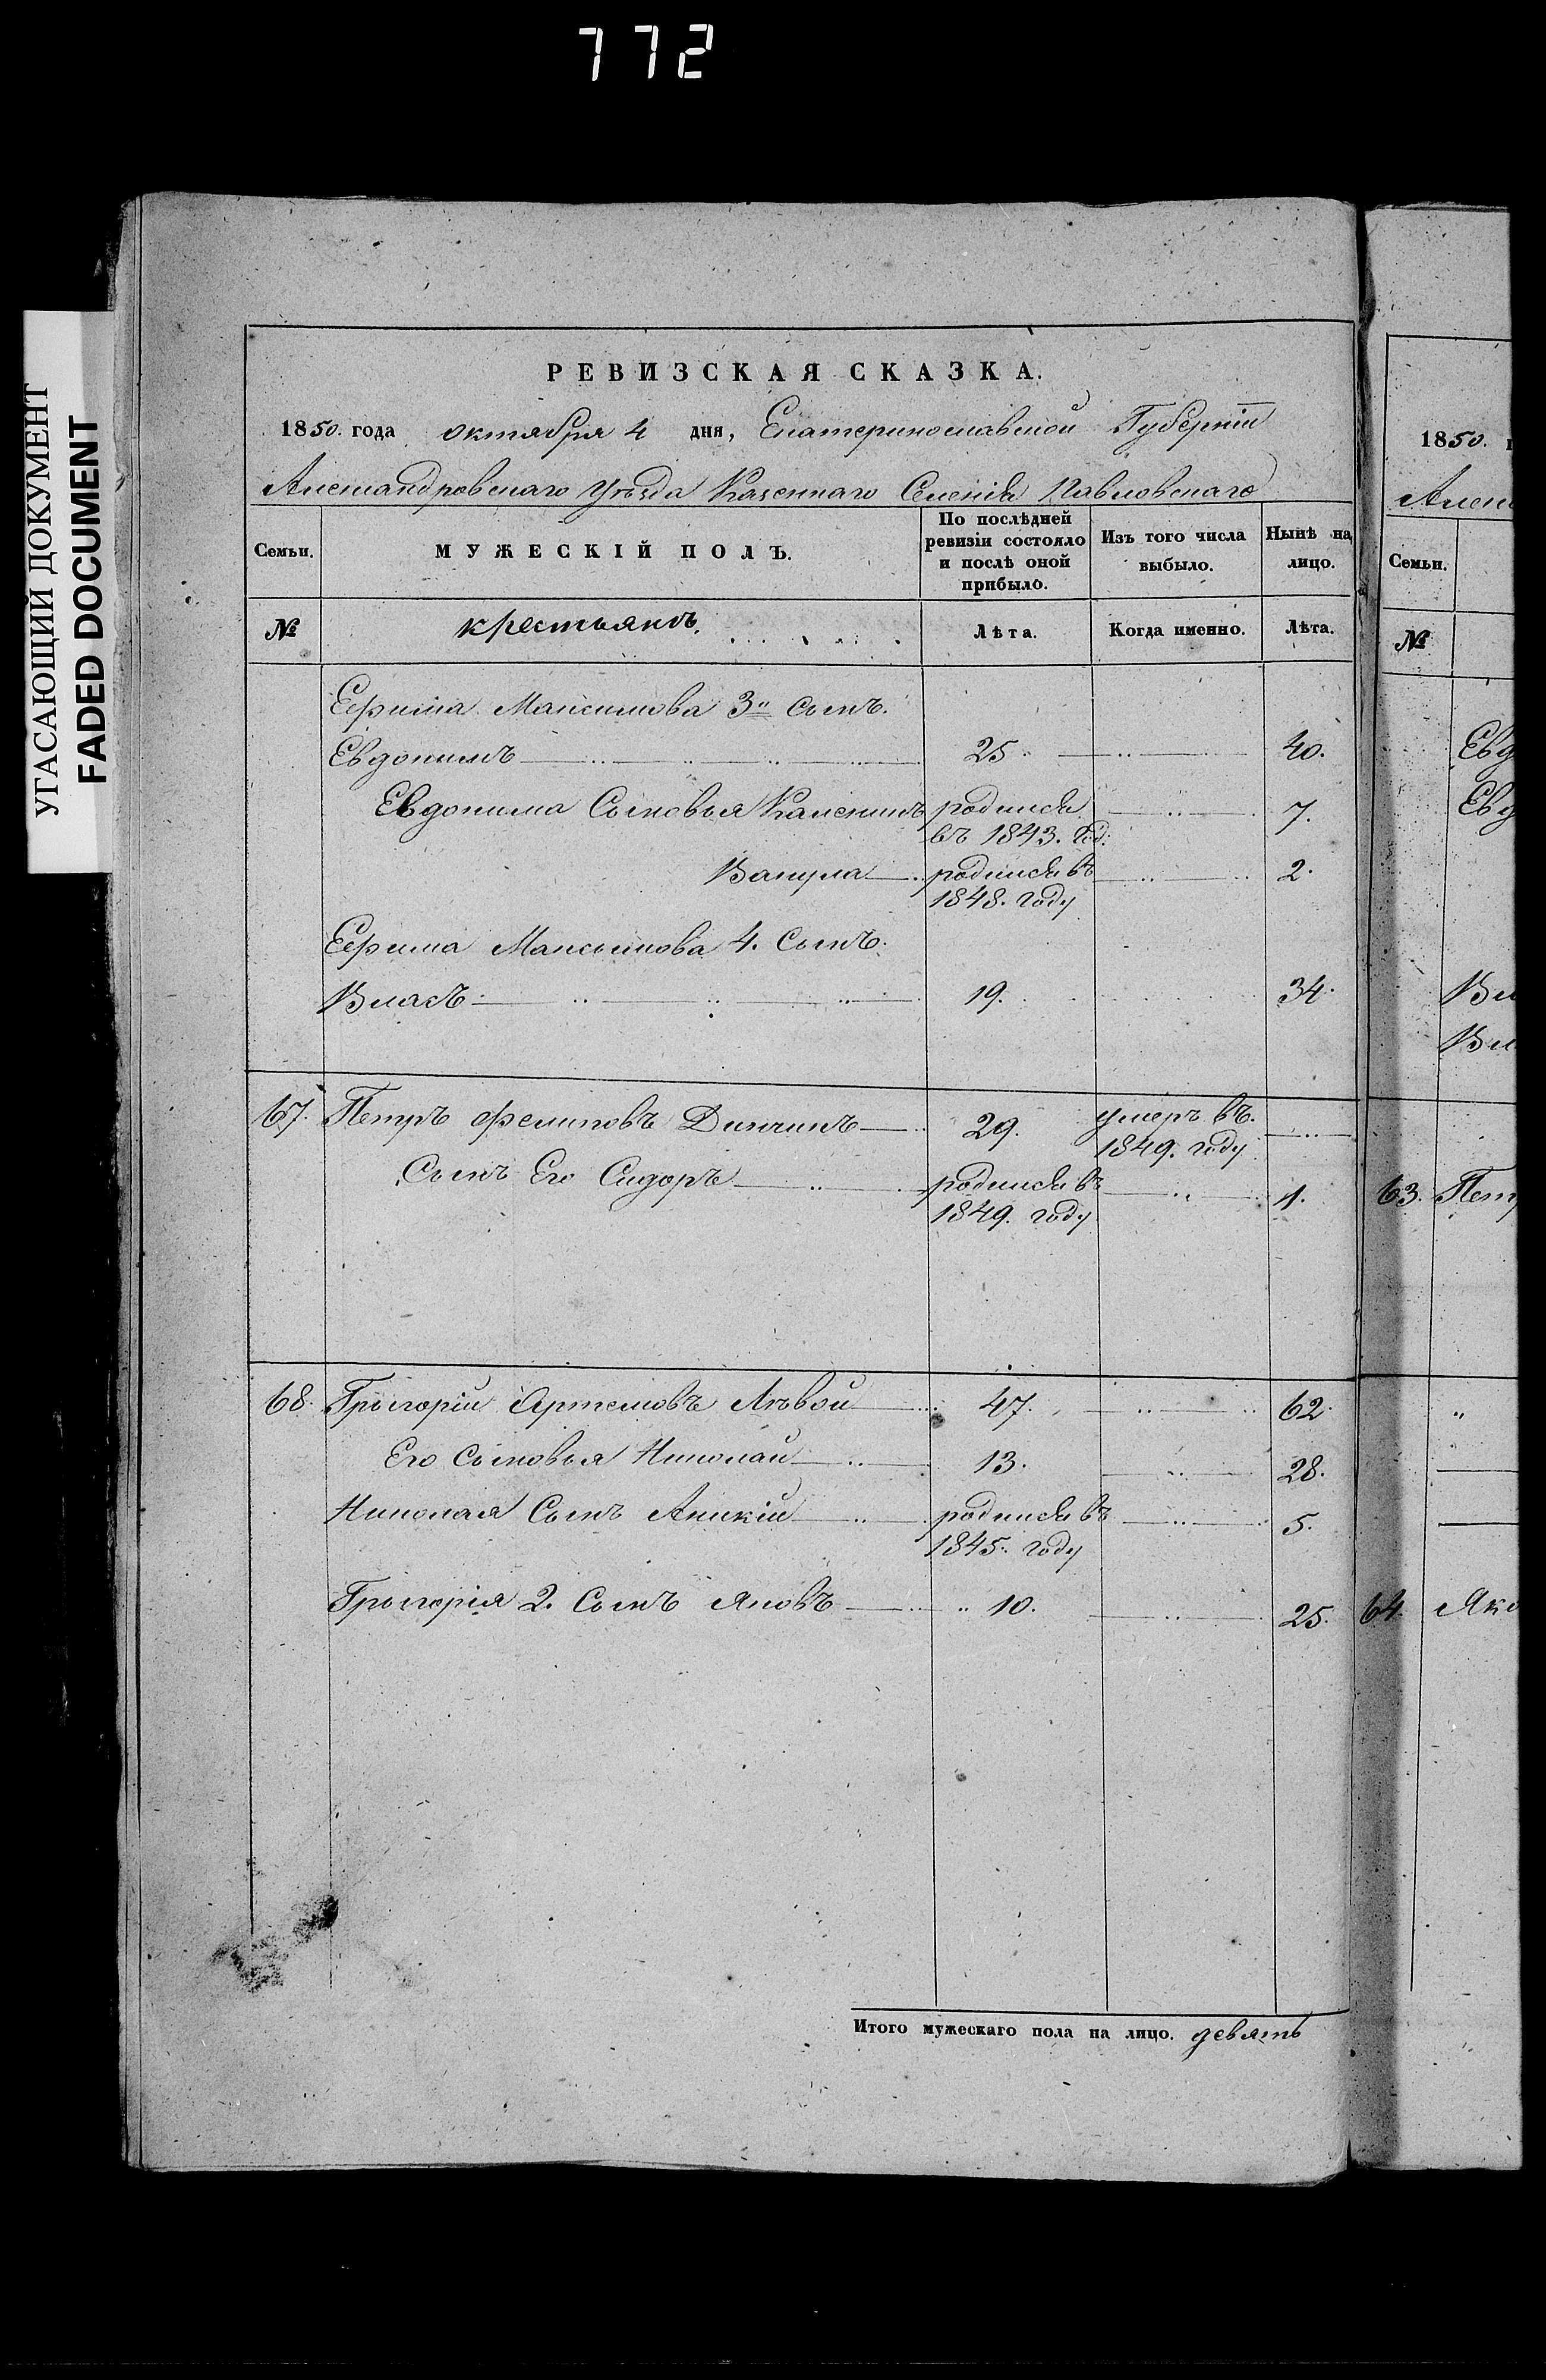 772
УГАСАЮЩИЙ ДОКУМЕНТ
FADED DOCUMENT
РЕВИЗСКАЯ СКАЗКА.
1850. года октября 4 дня, Екатеринославской Губерніи
Александровскаго Уѣзда Казеннаго Селенія Павловскаго
Семьи.
МУЖЕСКІЙ ПОЛЪ.
По послѣдней ревизіи состояло и послѣ оной прибыло.
Изъ того числа выбыло.
Нынѣ на лицо.
№ крестьянъ. Лѣта. Когда именно. Лѣта.
Ефима Максимова 3й сынъ.
Евдокимъ 25 40.
Евдокима Сыновья Каленикъ родился 7.
въ 1843. Год:
Вакула родился въ 2.
1848. году
Ефима Максимова 4. сынъ.
Власъ 19. 34.
67. Петръ Филиповъ 29. умеръ въ.
1849. году
Сынъ Его Сидоръ родился въ 1.
1849. году
68. Григорій Артемовъ Лѣвой 47. 62.
Его Сыновья Николай 13. 28.
Николая Сынъ Аникій родился въ 5.
1845. году
Григорія 2. Сынъ Яковъ 10. 25.
Итого мужескаго пола на лицо. девять
1850.
Алекс
Семьи.
№
Евд
Евд
Вл
Вл
63. Пет
64. Яко